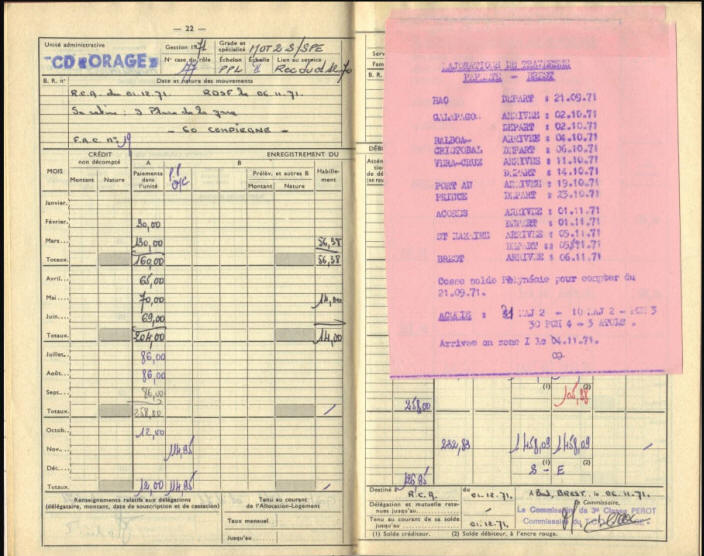 — 22 —
Unité administrative
"CD "ORAGE"
Gestion 1971
N° case du rôle
Grade et spécialité MOT 2 S/SPE
Échelon PPL Échelle Lien au service
B. R. n°
Date et nature des mouvements
R.C.A. du 01.12.71. le 06.11.71.
3 Place de la
— 60 COMPIEGNE —
F.A.C. n° 19
CRÉDIT non décompté
ENREGISTREMENT DU
A
B
MOIS
Montant
Nature
Paiements dans l'unité
Prélèv. et autres B
Montant
Nature
Habillement
Janvier.
Février. 30,00
Mars... 130,00 56,38
Totaux. 160,00 56,38
Avril... 65,00
Mai ... 70,00 14,00
Juin... 69,00
Totaux. 204,00 14,00
Juillet.. 86,00
Août... 86,00
Sept... 86,00
Totaux. 258,00
Octob.. 12,00
Nov... 114,85
Déc....
Totaux. 12,00 114,85
Renseignements relatifs aux délégations
(délégataire, montant, date de souscription et de cessation)
Tenu au courant
de l'Allocation-Logement
Taux mensuel
Jusqu'au
Serv
Fam
B. R.
DÉB
PAPEETE — BREST
HAO DEPART : 21.09.71
GALAPAGOS ARRIVEE : 02.10.71
DEPART : 02.10.71
BALBOA— ARRIVEE : 04.10.71
CRISTOBAL DEPART : 06.10.71
VERA-CRUZ ARRIVEE : 11.10.71
DEPART : 14.10.71
PORT AU ARRIVEE : 19.10.71
PRINCE DEPART : 23.10.71
ACORES ARRIVEE : 01.11.71
DEPART : 01.11.71
ST NAZAIRE ARRIVEE : 05.11.71
DEPART : 05.11.71
BREST ARRIVEE : 06.11.71
Cesse solde Polynésie pour compter du
21.09.71.
MAJ 2 — 10 MAJ 2 —
30 PCH 4 — 3
Arrivee en zone I le 04.11.71.
(1) (2)
258,00
232,83 1458,09 1458,09
(1) (2)
S - E
126,85
Destiné à R.C.A. du 01.12.71. A Bord, BREST, le 06.11.71.
Délégation et mutuelle retenues jusqu'au
Le Commissaire,
Le Commissaire de 3e Classe PEROT
Tenu au courant de sa solde jusqu'au 01.12.71.
Commissaire du
(1) Solde créditeur. (2) Solde débiteur, à l'encre rouge.